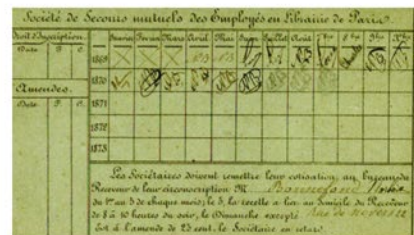 Société de Secours mutuels des Employés en Librairie de Paris.
Droit d'Inscription.
Date. F. C.
Janvier Février Mars Avril Mai Juin Juillet Août 7bre 8bre 9bre Xbre
1869
1870
Amendes.
Date. F. C.
1871
1872
1873
Les Sociétaires doivent remettre leur cotisation, au bureau du
Receveur de leur circonscription M Bonnefond
du 1er au 5 de chaque mois; le 5, la recette a lieu au domicile du Receveur
de 8 à 10 heures du soir, le Dimanche excepté
Est à l'amende de 25 cent. le Sociétaire en retard.